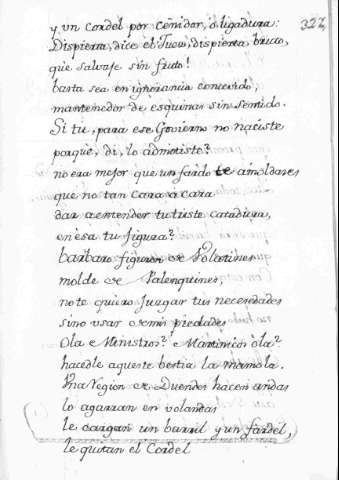 322
y, un Cordel por Ceñidor, o ligadura:
Dispierta, dice el Juez, dispierta, bruto,
que salvaje sin fruto!
basta sea en ignorancia conocido,
mantenedor de esquinas sin Sentido.
Si tu, para ese Govierno no naciste
porquè, di, lo admitiste?
no era mejor que un fardo te amoldases
que no tan cara a cara
dar a entender tu triste catadura,
en èsa tu figura?
barbaro figuron de Volatines
molde de Palenquines,
no te quiero Juzgar tus necedades
sino usar de mis piedades
Ola e Ministros? e Martinicos ola?
hacedle aqueste bestia la mamola.
Una Legion de Duendes hacen andas
lo agarran en volandas
le cargan un barril y un fardel,
le quitan el Cordel